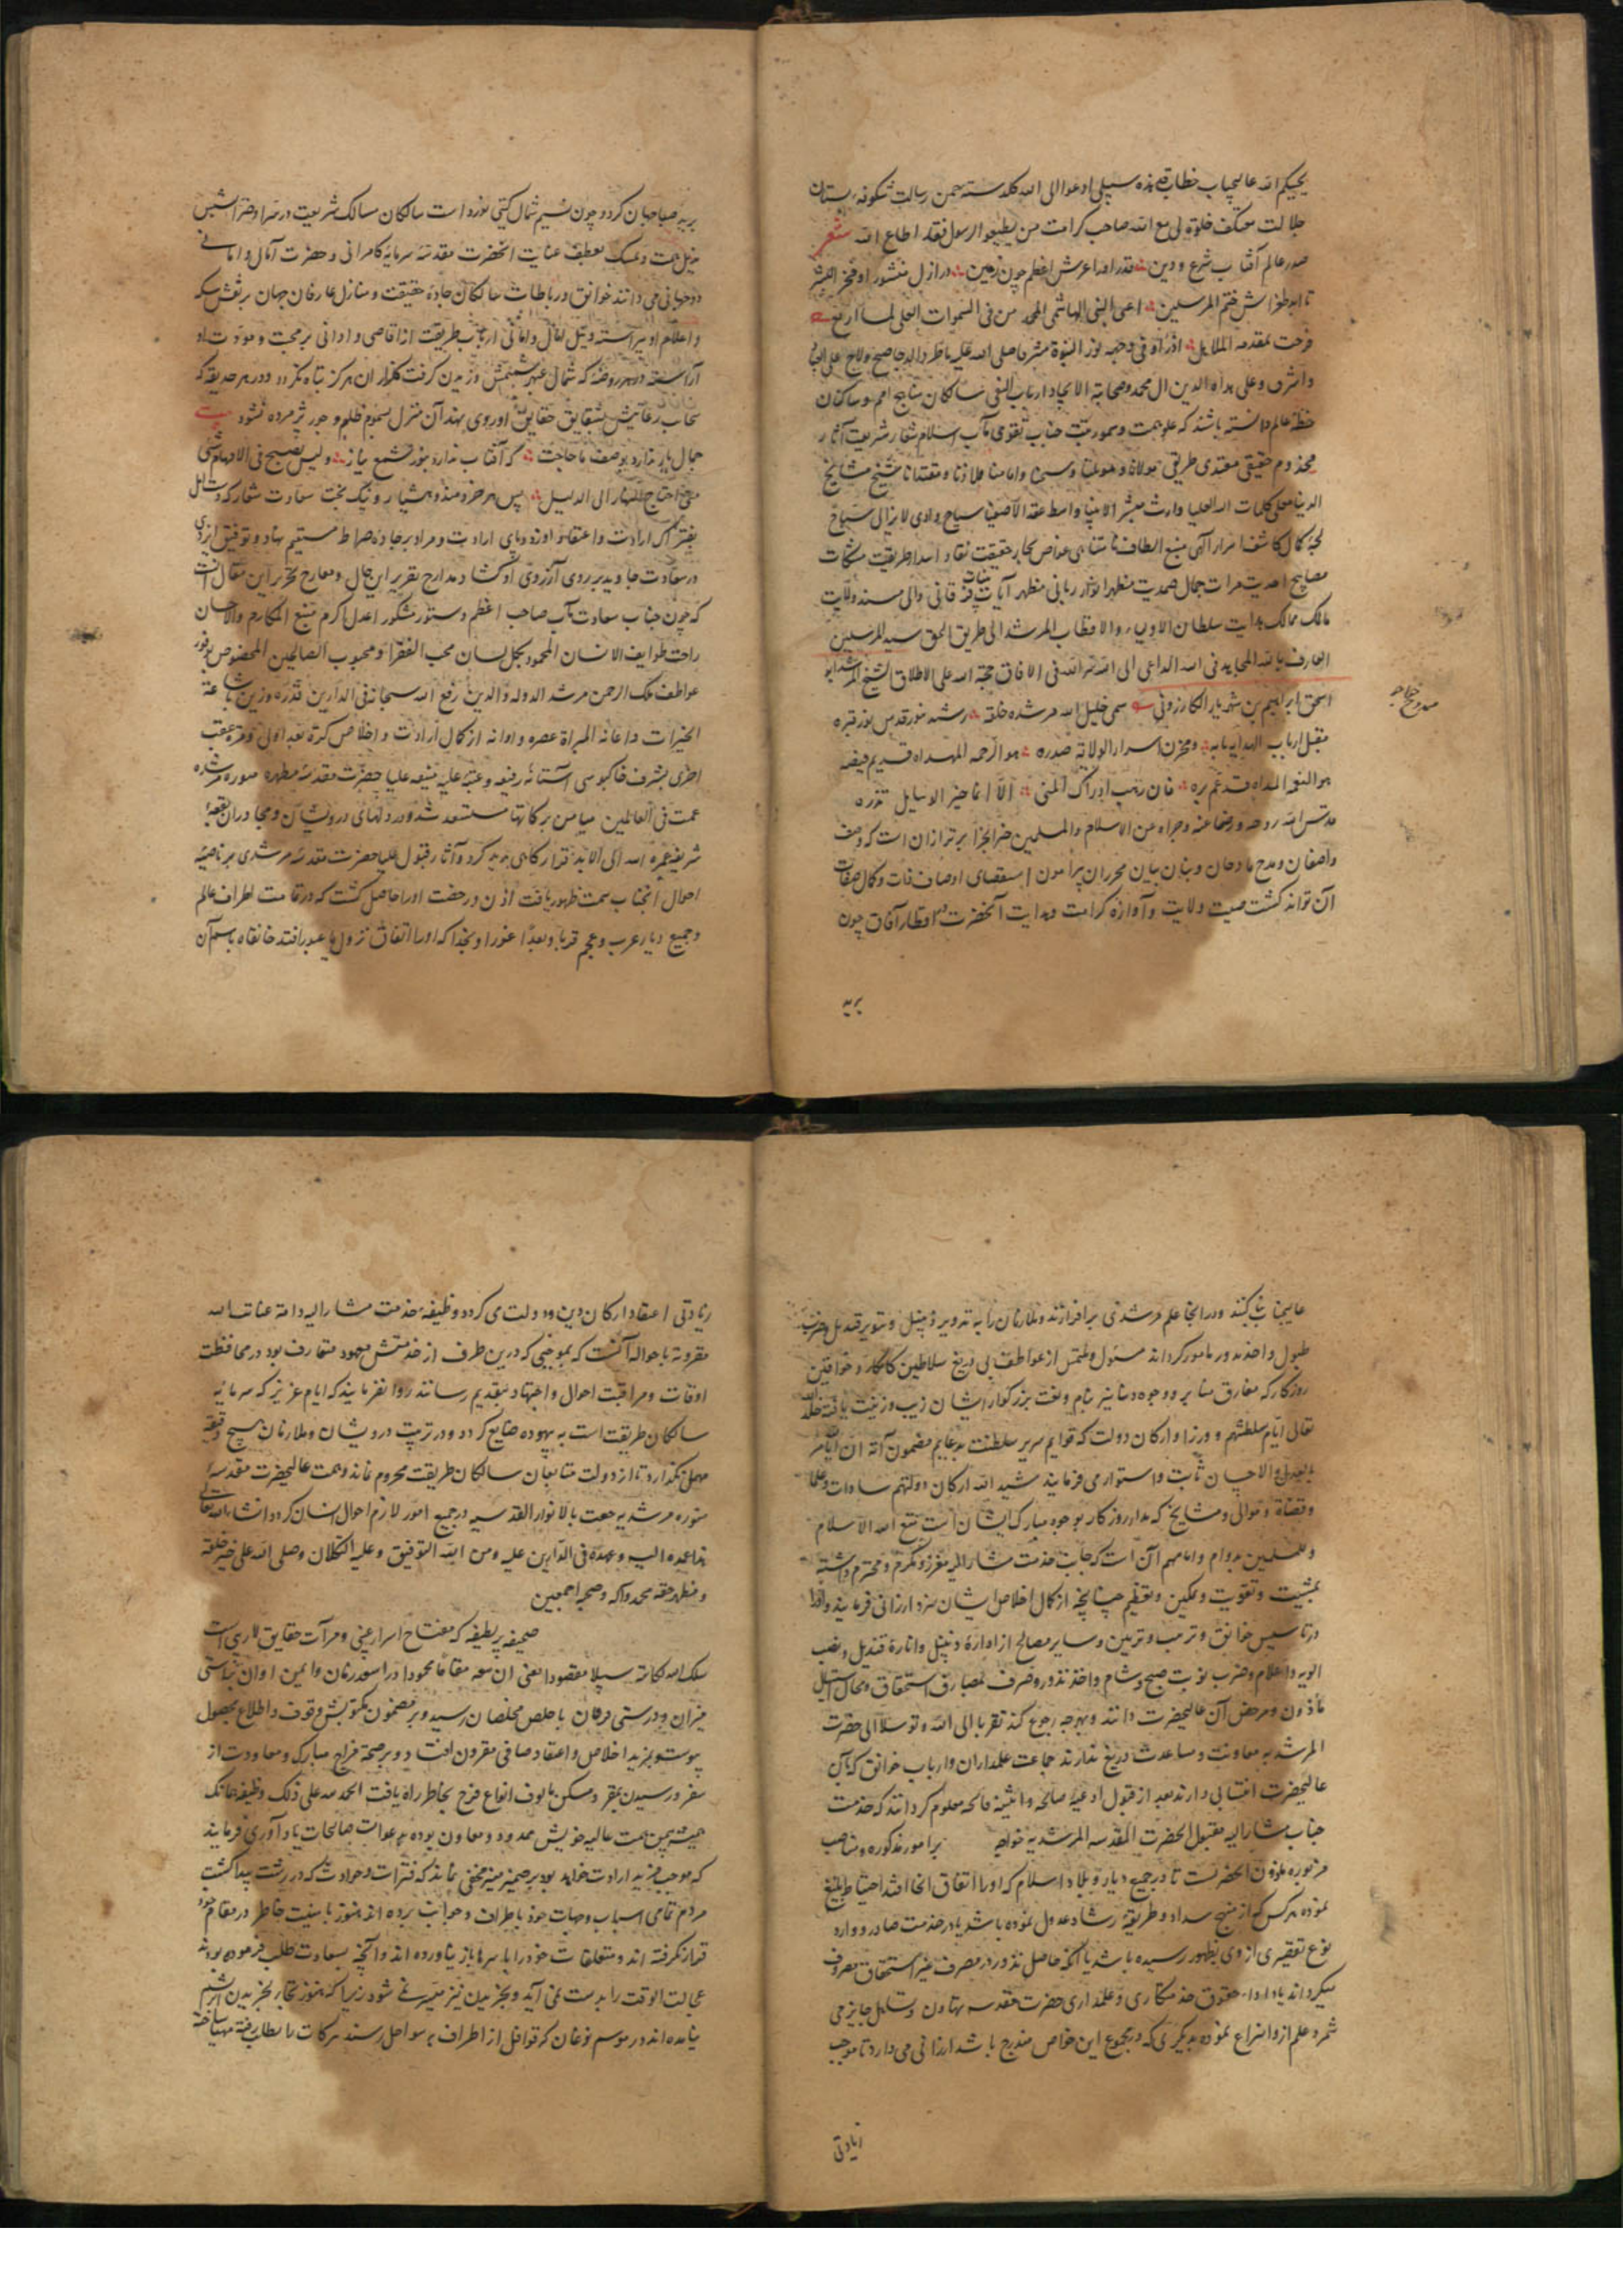 یحبیکم الله عالیجناب خطاب قل هذه سبیلی ادعوا الی الله کلدسته چمن رسالت شکوفه بستان
جلالت معتکف خلوة لی مع الله صاحب کرامت من یطیع الرسول فقد اطاع الله شعر
صدر عالم آفتاب شرع و دین قدر او را عرش اعظم چون زمین در ازل منشور او فخر البشر
تا ابد طغراش ختم المرسلین اعنی النبی الهاشمی المحمد من فی السموات العلی لما ارتفع
فرحت بمقدمه الملایک اذ رأو فی وجهه نور النبوة
واشرف وعلی هداة الدین ال محمد وصحابه الامجاد ارباب التقی سالکان مناهج امم و ساکنان
خطه عالم دانسته باشند که علو همت و سمو رتبت جناب تقوی مآب اسلام شعار شریعت آثار
مخدوم حقیقی مقتدی طریقی مولانا و مولینا و سیدنا و امامنا ملاذنا و مقتدانا شیخ مشایخ
الدنیا محلی کلمات الله العلیا وارث معشر الانبیا واسطه عقد الاصفیا سیاح وادی لایزالی سباح
لجه کمال کاشف اسرار الهی منبع الطاف نامتناهی غواص بحار حقیقت نقاد اسرار طریقت مشکات
مصابیح احدیت مرات جمال صمدیت مظهر انوار ربانی مظهر آیات بینات فرقانی والی مسند ولایت
مالک ممالک هدایت سلطان الاولیاء والاقطاب المرشد الی طریق الحق سید المرسلین
العارف بالله المجاهد فی الله الداعی الی الله سر الله فی الافاق حجة الله علی الاطلاق الشیخ المرشد ابو
اسحق ابراهیم بن شهریار الکازرونی سمی خلیل الله مرشد خلقه رشید منور قدس نور قبره
مقبل ارباب الهدایه بابه ومخزن اسرار الولایة صدره هو الرحمه المهداه قدیم فیضه
هو النعمه المهداه قد عم بره فان رمت ادراک المنی الا انما خیر الوسایل نذره
قدس الله روحه و رضی عنه و جزاه عن الاسلام والمسلمین خیر الجزا برتر از ان است که وصف
واصفان و مدح مادحان و بنان بیان محرران پیرامون استقصای اوصاف ذات و کمال صفات
آن تواند کشت صیت ولایت و آوازه کرامت و هدایت آنحضرت در اقطار آفاق چون
بریه
برید صبا جهان کرد و چون نسیم شمال کیتی نورد است سالکان مسالک شریعت
بذیل همت و تمسک بعطف عنایت انحضرت مقدسه سرمایه کامرانی و حضرت آمال و امانی
دوجهانی می دانند خوانق و رباطات سالکان جاده حقیقت و منازل عارفان جهان بر نقش سکه
و اعلام او پیراسته و نیل آمال و امانی ارباب طریقت از اقاصی و ادانی بر محبت و مودت او
آراسته در هر روضه که شمال عنبر شمیمش وزیدن کرفت کلزار ان هرکز تباه نکردد و در هر حدیقه که
سحاب رعایتش بشقایق حقایق او روی نهد آن منزل بسموم ظلم و جور پژمرده نشود بیت
جمال یار ندارد بوصف ما حاجت که آفتاب ندارد بنور شمع نیاز ولیس یصح فی الافهام شی
متی احتاج النهار الی الدلیل پس هر خردمند و هشیار و نیک بخت سعادت شعار که دست امل
بفتراک ارادت و اعتقاد او زد و پای ارادت و مراد بر جاده صراط مستقیم نهاد و توفیق ایزدی
در سعادت جاویدی بر روی آرزوی او کشاد مدارج تقریر این حال و معارج تحریر این مقال انست
که چون جناب سعادت مآب صاحب اعظم دستور مشکور اعدل اکرم منبع المکارم والاحسان
راحت طوایف الانسان المحمود بکل لسان محب الفقرا و محبوب الصالحین المخصوص بوفور
عواطف ملک الرحمن مرشد الدولة والدین رفع الله سبحانه فی الدارین قدره وزین باشاعة
الخیرات و اعانة المبراة عصره و اوانه از کمال ارادت و اخلاص کرة بعد اولی و مرة عقب
اخری بشرف خاکبوسی آستانه رفیعه و عتبه علیه منیفه علیا حضرت مقدسه مطهره منوره مرشدیه
عمت فی العالمین میامن برکاتها مستسعد شد و در دلهای درویشان و مجاوران بقعه
شریفه عمره الله الی الابد
احوال انجناب سمت ظهور یافت اذن و رخصت او را حاصل کشت که در قامت اطراف عالم
و جمیع دیار عرب و عجم قربا و بعدا غورا و نجدا که او را اتفاق نزول یا عبور افتد خانقاه باسم آن
عالیجناب بنا کند و در انجا علم مرشدی برافرازند و ملازمان را به تدویر زنبیل و تنویر قندیل و ضرب
طبول و اخذ نذور مامور کرداند مسئول و ملتمس از عواطف بی دریغ سلاطین کامکار و خواقین
روزکار که مفارق منابر و وجوه دنانیر بنام و نعت بزرکوار ایشان زیب و زینت یافته خلد
تعالی ایام سلطنتهم و وزرا و ارکان دولت که قوایم سریر سلطنت بدعایم مضمون آن الله یامر
بالعدل والاحسان ثابت و استوار می فرمایند شید الله ارکان دولتهم سادات و علما
و قضاة و موالی و مشایخ که مدار روزکار بوجوه مبارک ایشان است متع الله الاسلام
والمسلمین بدوام ایامهم آن است که جانب خدمت مشار الیه معزز و مکرم و محترم داشته
بمشیت و تقویت و تمکین و تعظیم چنانچه از کمال اخلاص ایشان سزد ارزانی فرمایند و او را
در تاسیس خوانق و ترتیب و تزیین و سایر مصالح از اداره زنبیل و انارة قندیل و نصب
الویه و اعلام و ضرب نوبت صبح و شام و اخذ نذور و صرف بمصارف استحقاق
ماذون و مرخص آن عالیحضرت دانند و بهرچه رجوع کند تقربا الی الله و توسلا الی حضرت
المرشدیه معاونت و مساعدت دریغ ندارند جماعت علمداران و ارباب خوانق که بآن
عالیحضرت انتسابی دارند بعد از قبول ادعیه صالحه و اثنیه فائحه معلوم کردانند که خدمت
جناب مشار الیه مقبل الحضرت المقدسه المرشدیه خواجه برامور مذکوره و مناصب
مزبوره ماذون انحضرت است تا در جمیع دیار و بلاد اسلام که او را اتفاق انجا افتد احتیاط بلیغ
نموده هر کس که از منهج سداد و طریقه رشاد عدول نموده باشد یا در خدمت صادر و وارد
نوع تقصیری از وی بظهور رسیده باشد یا آنکه حاصل نذور در مصرف غیر استحقاق مصروف
میکرداند یا در اداء حقوق خدمتکاری و علمداری حضرت مقدسه تهاون و تساهل جایز می
شمرد علم از و انتزاع نموده بدیکری که در مجموع این خواص مندرج باشد ارزانی می دارد تا موجب
زیادتی
زیادتی اعتقاد ارکان دین و دولت می کردد وظیفه خدمت مشار الیه دامة عنایت الله
مقرونة باحواله آنست که بموجبی که درین طرف از خدمتش معهود متعارف بود در محافظت
اوقات و مراقبت احوال و اجتهاد بتقدیم رسانند روا نفرمایند که ایام عزیز که سرمایه
سالکان طریقت است به بیهوده ضایع کردد و در تربیت درویشان و ملازمان هیچ دقیقه
مهمل نکذارد تا از دولت متابعان سالکان طریقت محروم نماند و همت عالیحضرت مقدسه
منوره مرشدیه حفت بالانوار القدسیه در جمیع امور لازم احوال انسان کردد انشاء الله تعالی
هذا عهده الیه و عهده فی الدارین علیه ومن الله التوفیق وعلیه التکلان وصلی الله علی خیر خلقه
ومظهر حقه محمد وآله وصحبه اجمعین
صحیفه پر لطیفه که مفتاح اسرار غیبی و مرآت حقایق لاریبی است
سلک الله لکاتبه سبیلا مقصودا یعنی ابن معه مقاما محمودا در اسعد زمان و ایمن اوان براستی
میزان و درستی فرقان باخلص مخلصان رسید و بر مضمون مکنونش وقوف و اطلاع بحصول
پیوست و بمزید اخلاص و اعتقاد صافی مقرون افتاد و بر صحت مزاج مبارک و معاودت از
سفر و رسیدن بمقر و مسکن مالوف انواع فرح بخاطر راه یافت الحمد لله علی ذلک وظیفه انک
همیشه بیمن همت عالیه خویش ممدود و معاون بوده بدعوات صالحات یادآوری فرمایند
که موجب مزید ارادت خواهد بود بر ضمیر منیر مخفی نماند که فترات و حوادث که در رشت پیدا کشت
مردم تمامی اسباب و جهات خود باطراف و جوانب برده اند هنوز بامنیت خاطر در مقام خود
قرار نکرفته اند و متعلقات خود را باسرها باز نیاورده اند و آنچه بسعادت طلب فرموده بودند
عجالت الوقت را بدست نمی آید و بخریدن نیز میسر نمی شود زیرا که هنوز تجار بخریدن ابریشم
نیامده اند در موسم نوغان که قوافل از اطراف بر سواحل رسند برکات